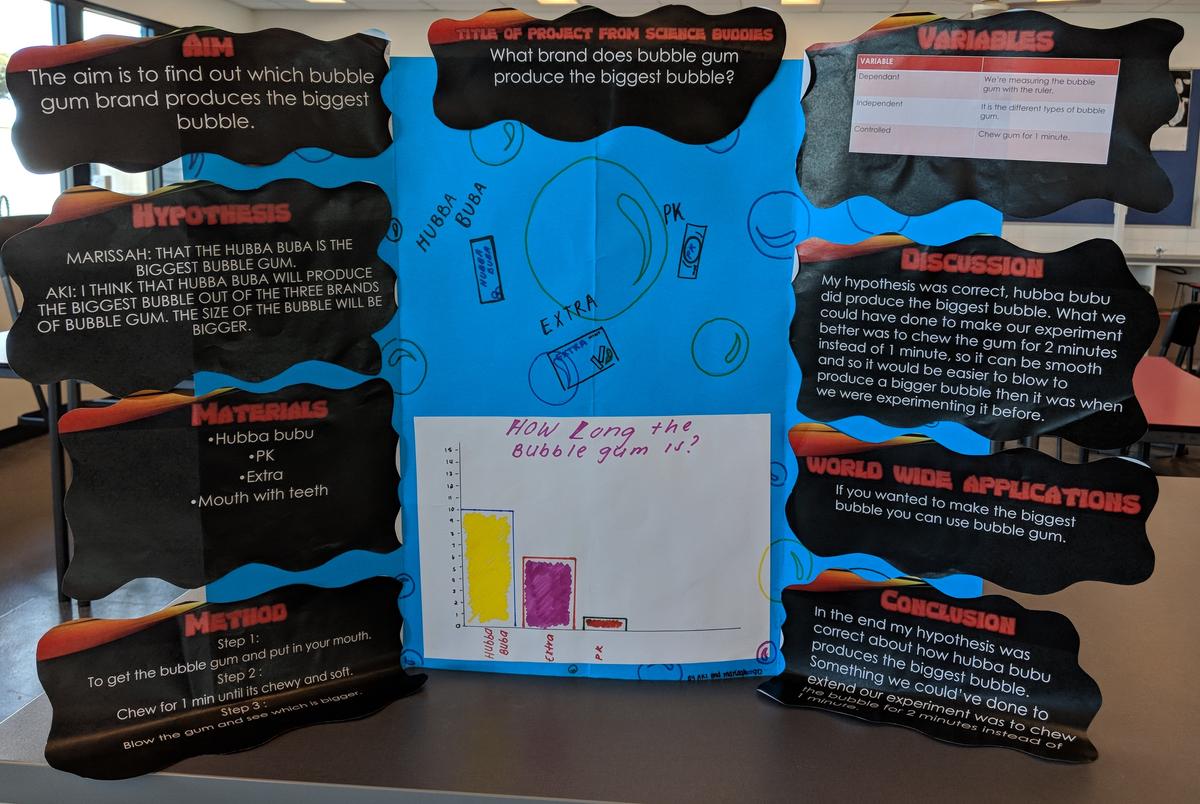 AIM
The aim is to find out which bubble
gum brand produces the biggest
bubble.
HYPOTHESIS
MARISSAH: THAT THE HUBBA BUBA IS THE
BIGGEST BUBBLE GUM.
AKI: I THINK THAT HUBBA BUBA WILL PRODUCE
THE BIGGEST BUBBLE OUT OF THE THREE BRANDS
OF BUBBLE GUM. THE SIZE OF THE BUBBLE WILL BE
BIGGER.
MATERIALS
•Hubba bubu
•PK
•Extra
•Mouth with teeth
METHOD
Step 1:
To get the bubble gum and put in your mouth.
Step 2 :
Chew for 1 min until its chewy and soft.
Step 3 :
Blow the gum and see which is bigger.
TITLE OF PROJECT FROM SCIENCE BUDDIES
What brand does bubble gum
produce the biggest bubble?
HUBBA
BUBA
HUBBA
BUBA
PK
PK
EXTRA
EXTRA
HOW Long the
Bubble gum is?
15
14
13
12
11
10
9
8
7
6
5
4
3
2
1
0
Hubba
Buba
Extra
PK
By AKI and
VARIABLES
VARIABLE
Dependant We're measuring the bubble
gum with the ruler.
Independent It is the different types of bubble
gum.
Controlled Chew gum for 1 minute.
DISCUSSION
My hypothesis was correct, hubba bubu
did produce the biggest bubble. What we
could have done to make our experiment
better was to chew the gum for 2 minutes
instead of 1 minute, so it can be smooth
and so it would be easier to blow to
produce a bigger bubble then it was when
we were experimenting it before.
WORLD WIDE APPLICATIONS
If you wanted to make the biggest
bubble you can use bubble gum.
CONCLUSION
In the end my hypothesis was
correct about how hubba bubu
produces the biggest bubble.
Something we could've done to
extend our experiment was to chew
the bubble for 2 minutes instead of
1 minute.